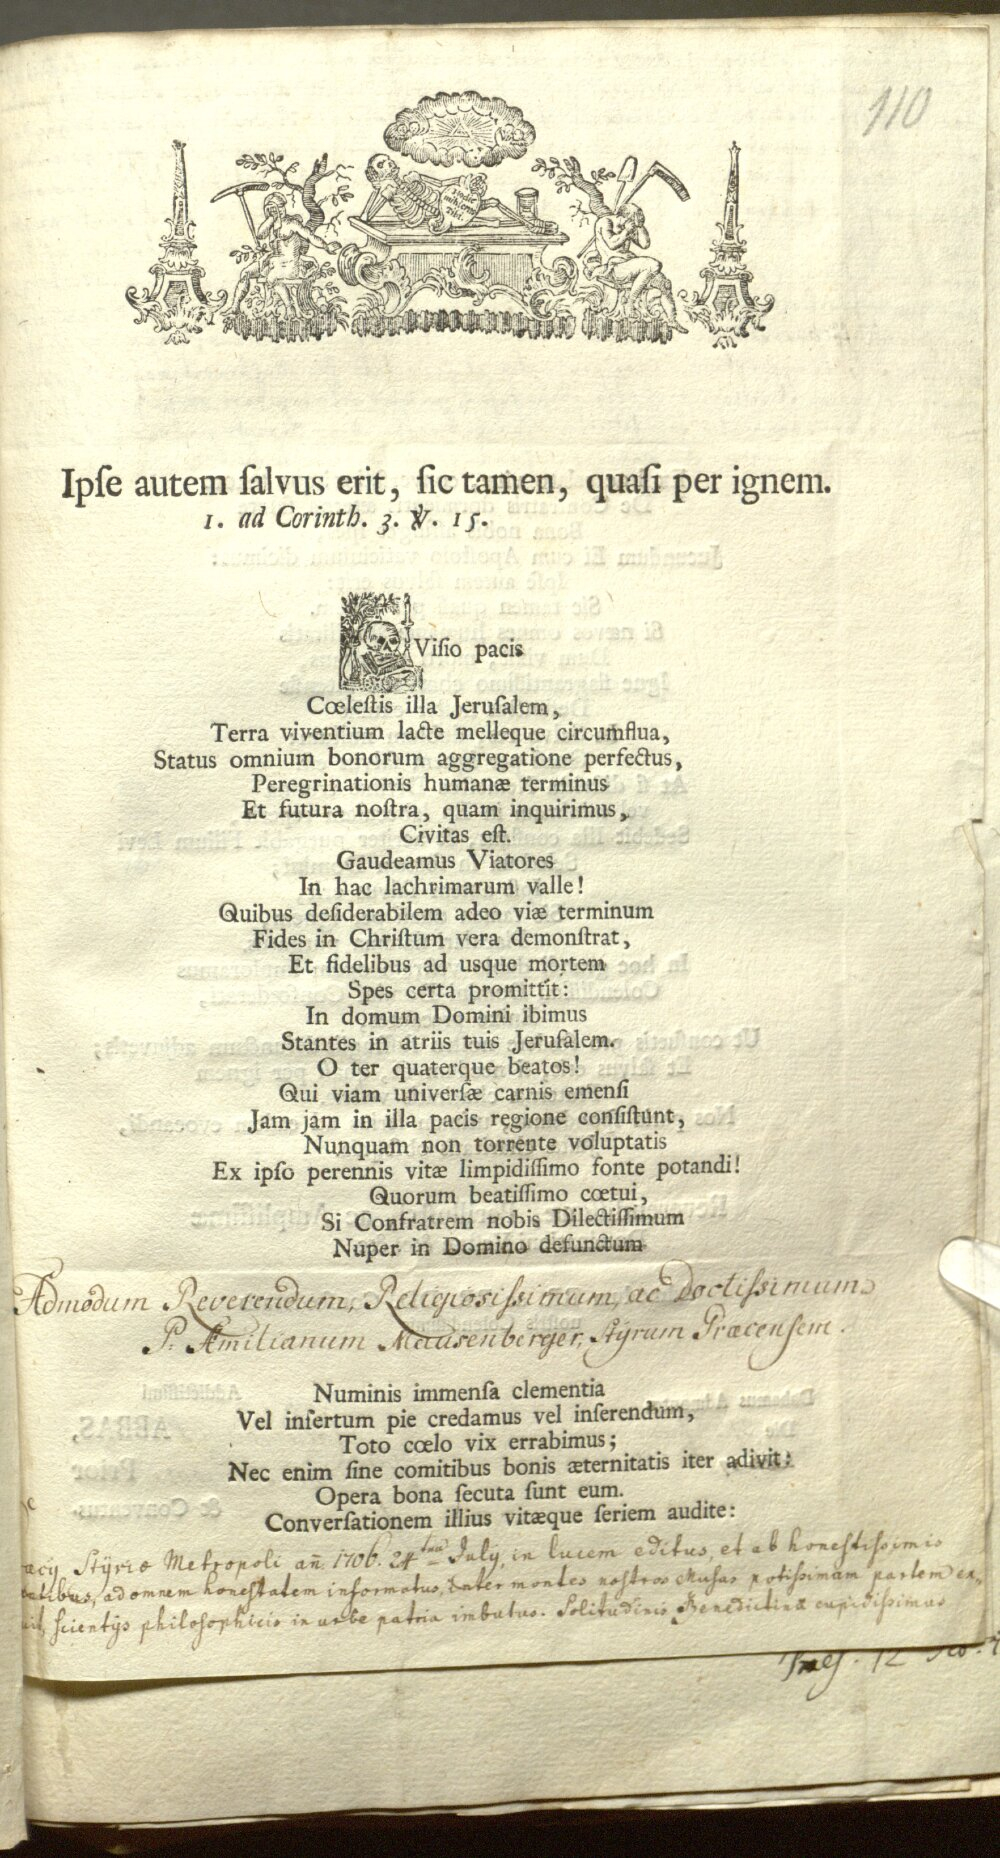 110
hodie mihi cras tibi.
Ipſe autem ſalvus erit, ſic tamen, quaſi per ignem.
1. ad Corinth. 3. ℣. 15.
Viſio pacis
Cœleſtis illa Jeruſalem,
Terra viventium lacte melleque circumflua,
Status omnium bonorum aggregatione perfectus,
Peregrinationis humanæ terminus
Et futura noſtra, quam inquirimus,
Civitas eſt.
Gaudeamus Viatores
In hac lachrimarum valle!
Quibus deſiderabilem adeo viæ terminum
Fides in Chriſtum vera demonſtrat,
Et fidelibus ad usque mortem
Spes certa promittit:
In domum Domini ibimus
Stantes in atriis tuis Jeruſalem.
O ter quaterque beatos!
Qui viam univerſæ carnis emenſi
Jam jam in illa pacis regione conſiſtunt,
Nunquam non torrente voluptatis
Ex ipſo perennis vitæ limpidiſſimo fonte potandi!
Quorum beatiſſimo cœtui,
Si Confratrem nobis Dilectiſſimum
Nuper in Domino defunctum
Admodum Reverendum, Religiosiſsimum, ac Doctiſsimum
P. Æmilianum Mausenberger, Styrum Græcensem.
Numinis immenſa clementia
Vel inſertum pie credamus vel inſerendum,
Toto cœlo vix errabimus;
Nec enim ſine comitibus bonis æternitatis iter adivit:
Opera bona ſecuta ſunt eum.
Converſationem illius vitæque ſeriem audite:
Styriæ Metropoli añ. 1706. 24ta July, in lucem editus, et ab honeſtiſsimis
ad omnem honeſtatem informatus, inter montes noſtros Musas potiſsimam partem
ſcientijs philoſophicis in urbe patria imbutus. Solitudinis Benedictinæ cupidiſsimus
12